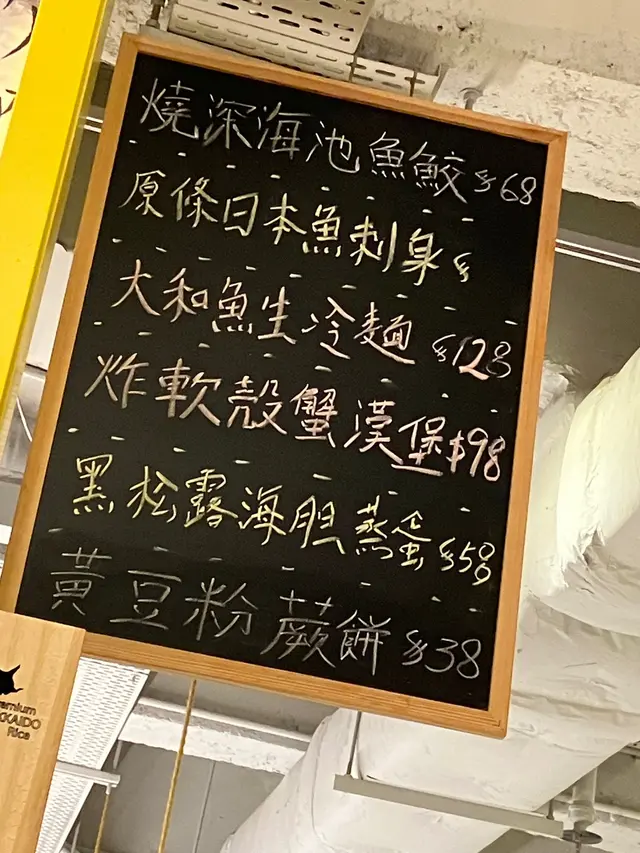 燒深海池魚鮫 $68
原條日本魚刺身 $
大和魚生冷麵 $128
炸軟殼蟹漢堡 $98
黑松露海胆蒸蛋 $58
黃豆粉蕨餅 $38
emium
KKAIDO
Rice